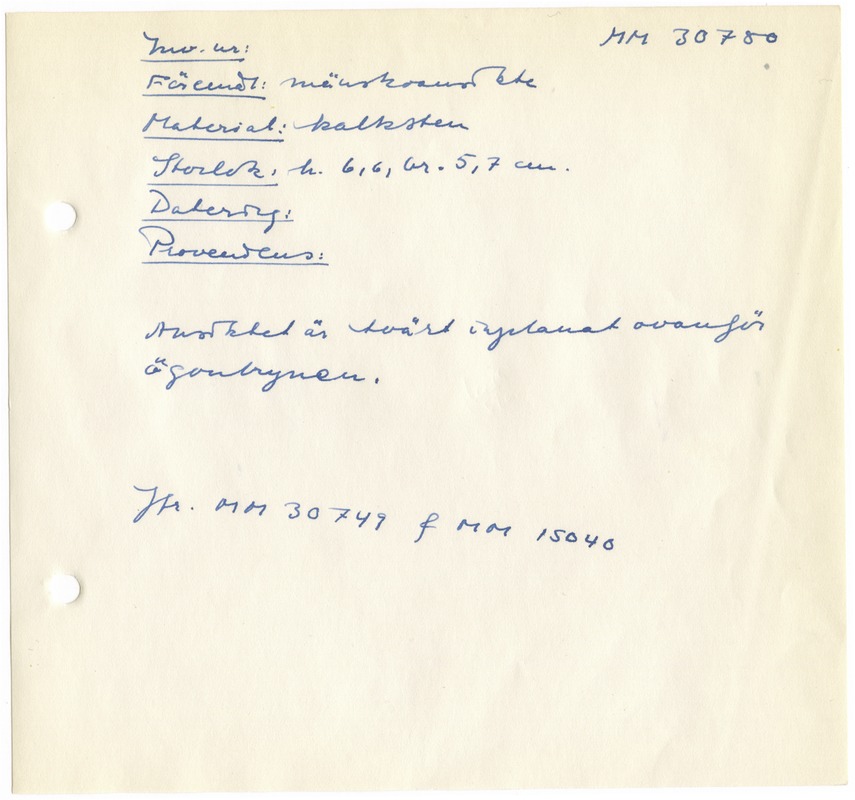 Inv.nr: MM 30780
Föremål: människoansikte
Material: kalksten
Storlek: h. 6,6, br. 5,7 cm.
Datering:
Proveniens:
Ansiktet är tvärt avplanat ovanför
ögonbrynen.
Jfr. MM 30749 & MM 15040